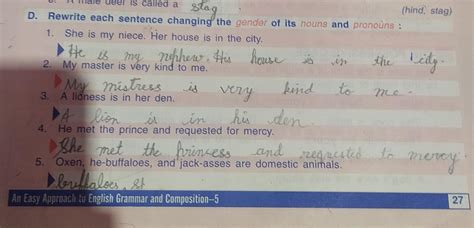 A male deer is called a stag (hind, stag)
D. Rewrite each sentence changing the gender of its nouns and pronouns :
1. She is my niece. Her house is in the city.
He is my nephew. His house is in the city.
2. My master is very kind to me.
My mistress is very kind to me.
3. A lioness is in her den.
A lion is in his den
4. He met the prince and requested for mercy.
She met the princess and requested to mercy
5. Oxen, he-buffaloes, and jack-asses are domestic animals.
buffaloes,
An Easy Approach to English Grammar and Composition–5 27